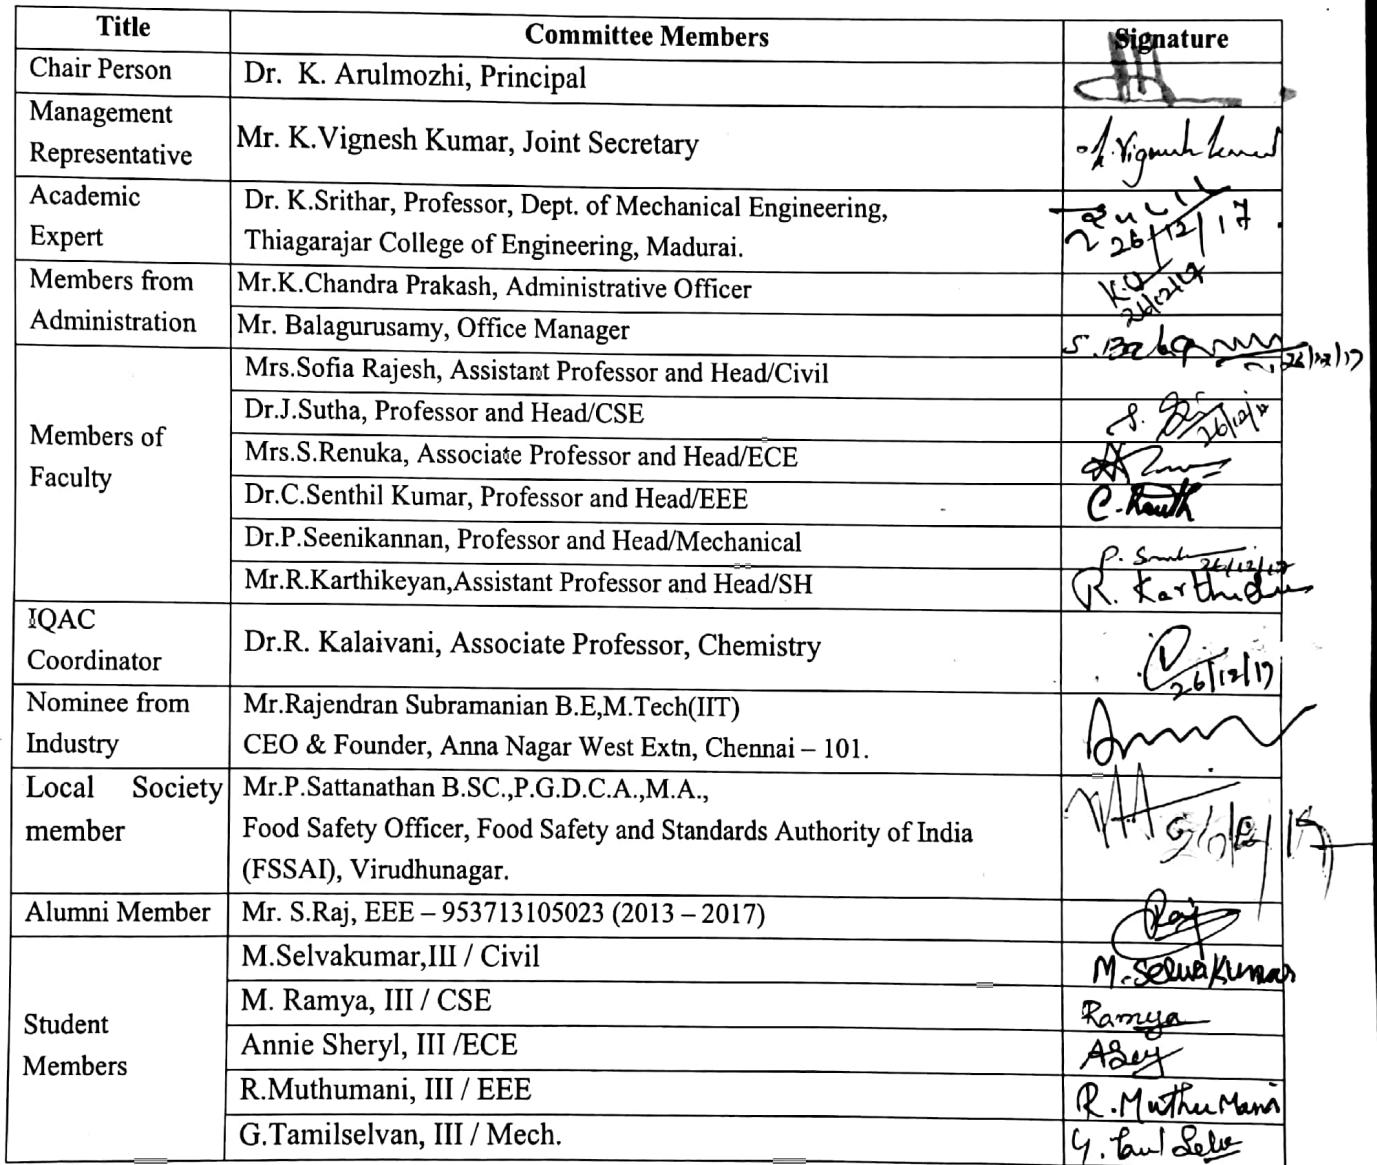 Title Committee Members Signature
Chair Person Dr. K. Arulmozhi, Principal
Management
Representative Mr. K.Vignesh Kumar, Joint Secretary K.Vignesh kumar
Academic
Expert
Dr. K.Srithar, Professor, Dept. of Mechanical Engineering,
Thiagarajar College of Engineering, Madurai.
26/12/17
Members from
Administration
Mr.K.Chandra Prakash, Administrative Officer
26/12/17
Mr. Balagurusamy, Office Manager
26/12/17
Members of
Faculty
Mrs.Sofia Rajesh, Assistant Professor and Head/Civil
Dr.J.Sutha, Professor and Head/CSE
Mrs.S.Renuka, Associate Professor and Head/ECE
Dr.C.Senthil Kumar, Professor and Head/EEE
Dr.P.Seenikannan, Professor and Head/Mechanical
26/12/17
Mr.R.Karthikeyan,Assistant Professor and Head/SH
IQAC
Coordinator
Dr.R. Kalaivani, Associate Professor, Chemistry
26/12/17
Nominee from
Industry
Mr.Rajendran Subramanian B.E,M.Tech(IIT)
CEO & Founder, Anna Nagar West Extn, Chennai – 101.
Local Society
member
Mr.P.Sattanathan B.SC.,P.G.D.C.A.,M.A.,
Food Safety Officer, Food Safety and Standards Authority of India
(FSSAI), Virudhunagar.
Alumni Member Mr. S.Raj, EEE – 953713105023 (2013 – 2017) Raj
Student
Members
M.Selvakumar,III / Civil M.Selvakumar
M. Ramya, III / CSE Ramya
Annie Sheryl, III /ECE
R.Muthumani, III / EEE R.MuthuMani
G.Tamilselvan, III / Mech.